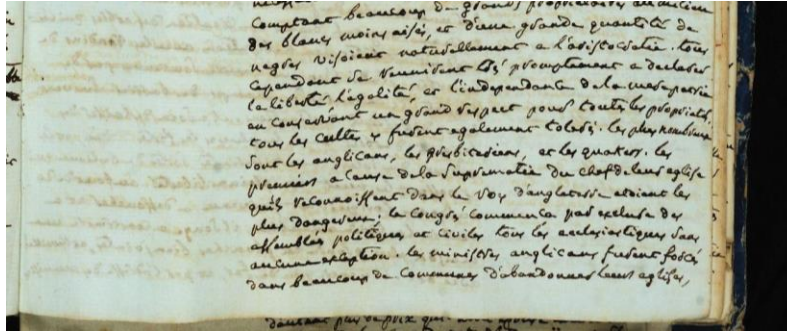 comptant beaucoup de grands propriétaires au milieu
des blancs moins aisés, et d'une grande quantité de
negres visoient naturellement a l'aristocratie. tous
cependant se reunirent très promptement a declarer
la liberté l'egalité, et l'independance de la mere patrie
en conservant un grand respect pour toutes les proprietés,
tous les cultes y furent egalement tolerés. les plus nombreux
sont les anglicans, les presbiteriens, et les quakers. les
premiers a cause de la suprematie du chef de leur eglise
qu'ils reconnoissent dans le roy d'angleterre etoient les
plus dangereux; le congrés commença par exclure des
assemblées politiques et civiles tous les ecclesiastiques sans
aucune exception. les ministres anglicans furent forcés
dans beaucoup de communes d'abandonner leurs eglises,
d'autant plus de prix que